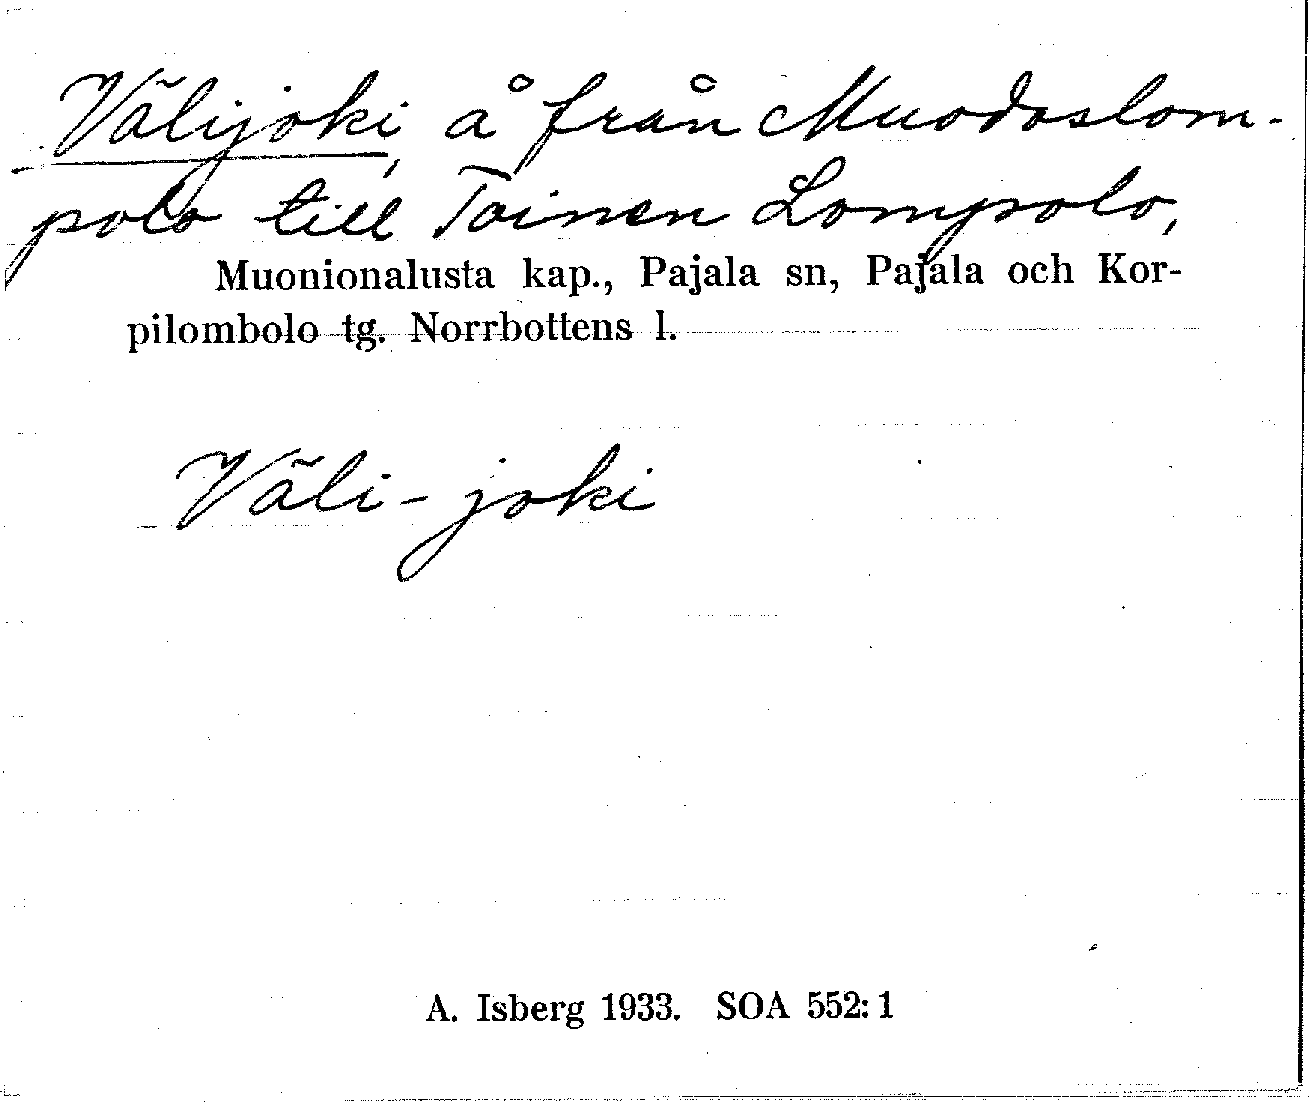 Välijoki, å från Muodoslom-
polo till Toinen Lompolo,
Muonionalusta kap., Pajala sn, Pajala och Kor-
pilombolo tg. Norrbottens l.
Väli-joki
A. Isberg 1933. SOA 552:1